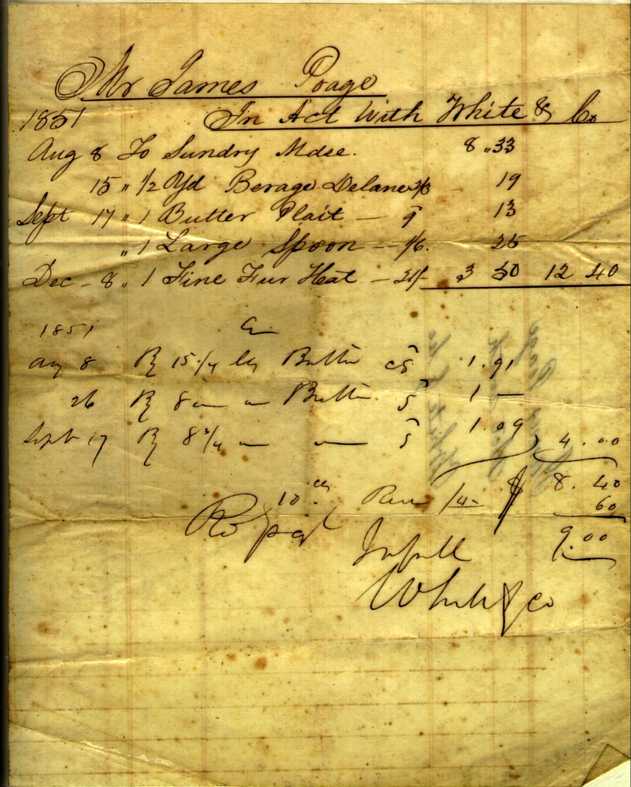 Mr James Poage
1851 In Act With White & Co
Aug 8 To Sundry Mdse. 8 .. 33
15 " 1/2 Yd Berage Delane 19
Sept 17 " 1 Butter Plait — 13
" 1 Large Spoon — 1/6. 25
Dec - 8 " 1 Fine Fur Hat — 3 50 12 40
1851
Aug 8 By 15 1/4 Butter 1.91
26 By 8 Butter 1 —
Sept 17 By 8 3/4 1.09
4.00
8.40
60
9.00
White & Co